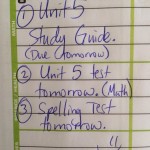 ① Unit 5
Study Guide.
(Due tomorrow)
② Unit 5 test
tomorrow. (Math)
③ Spelling Test
tomorrow.